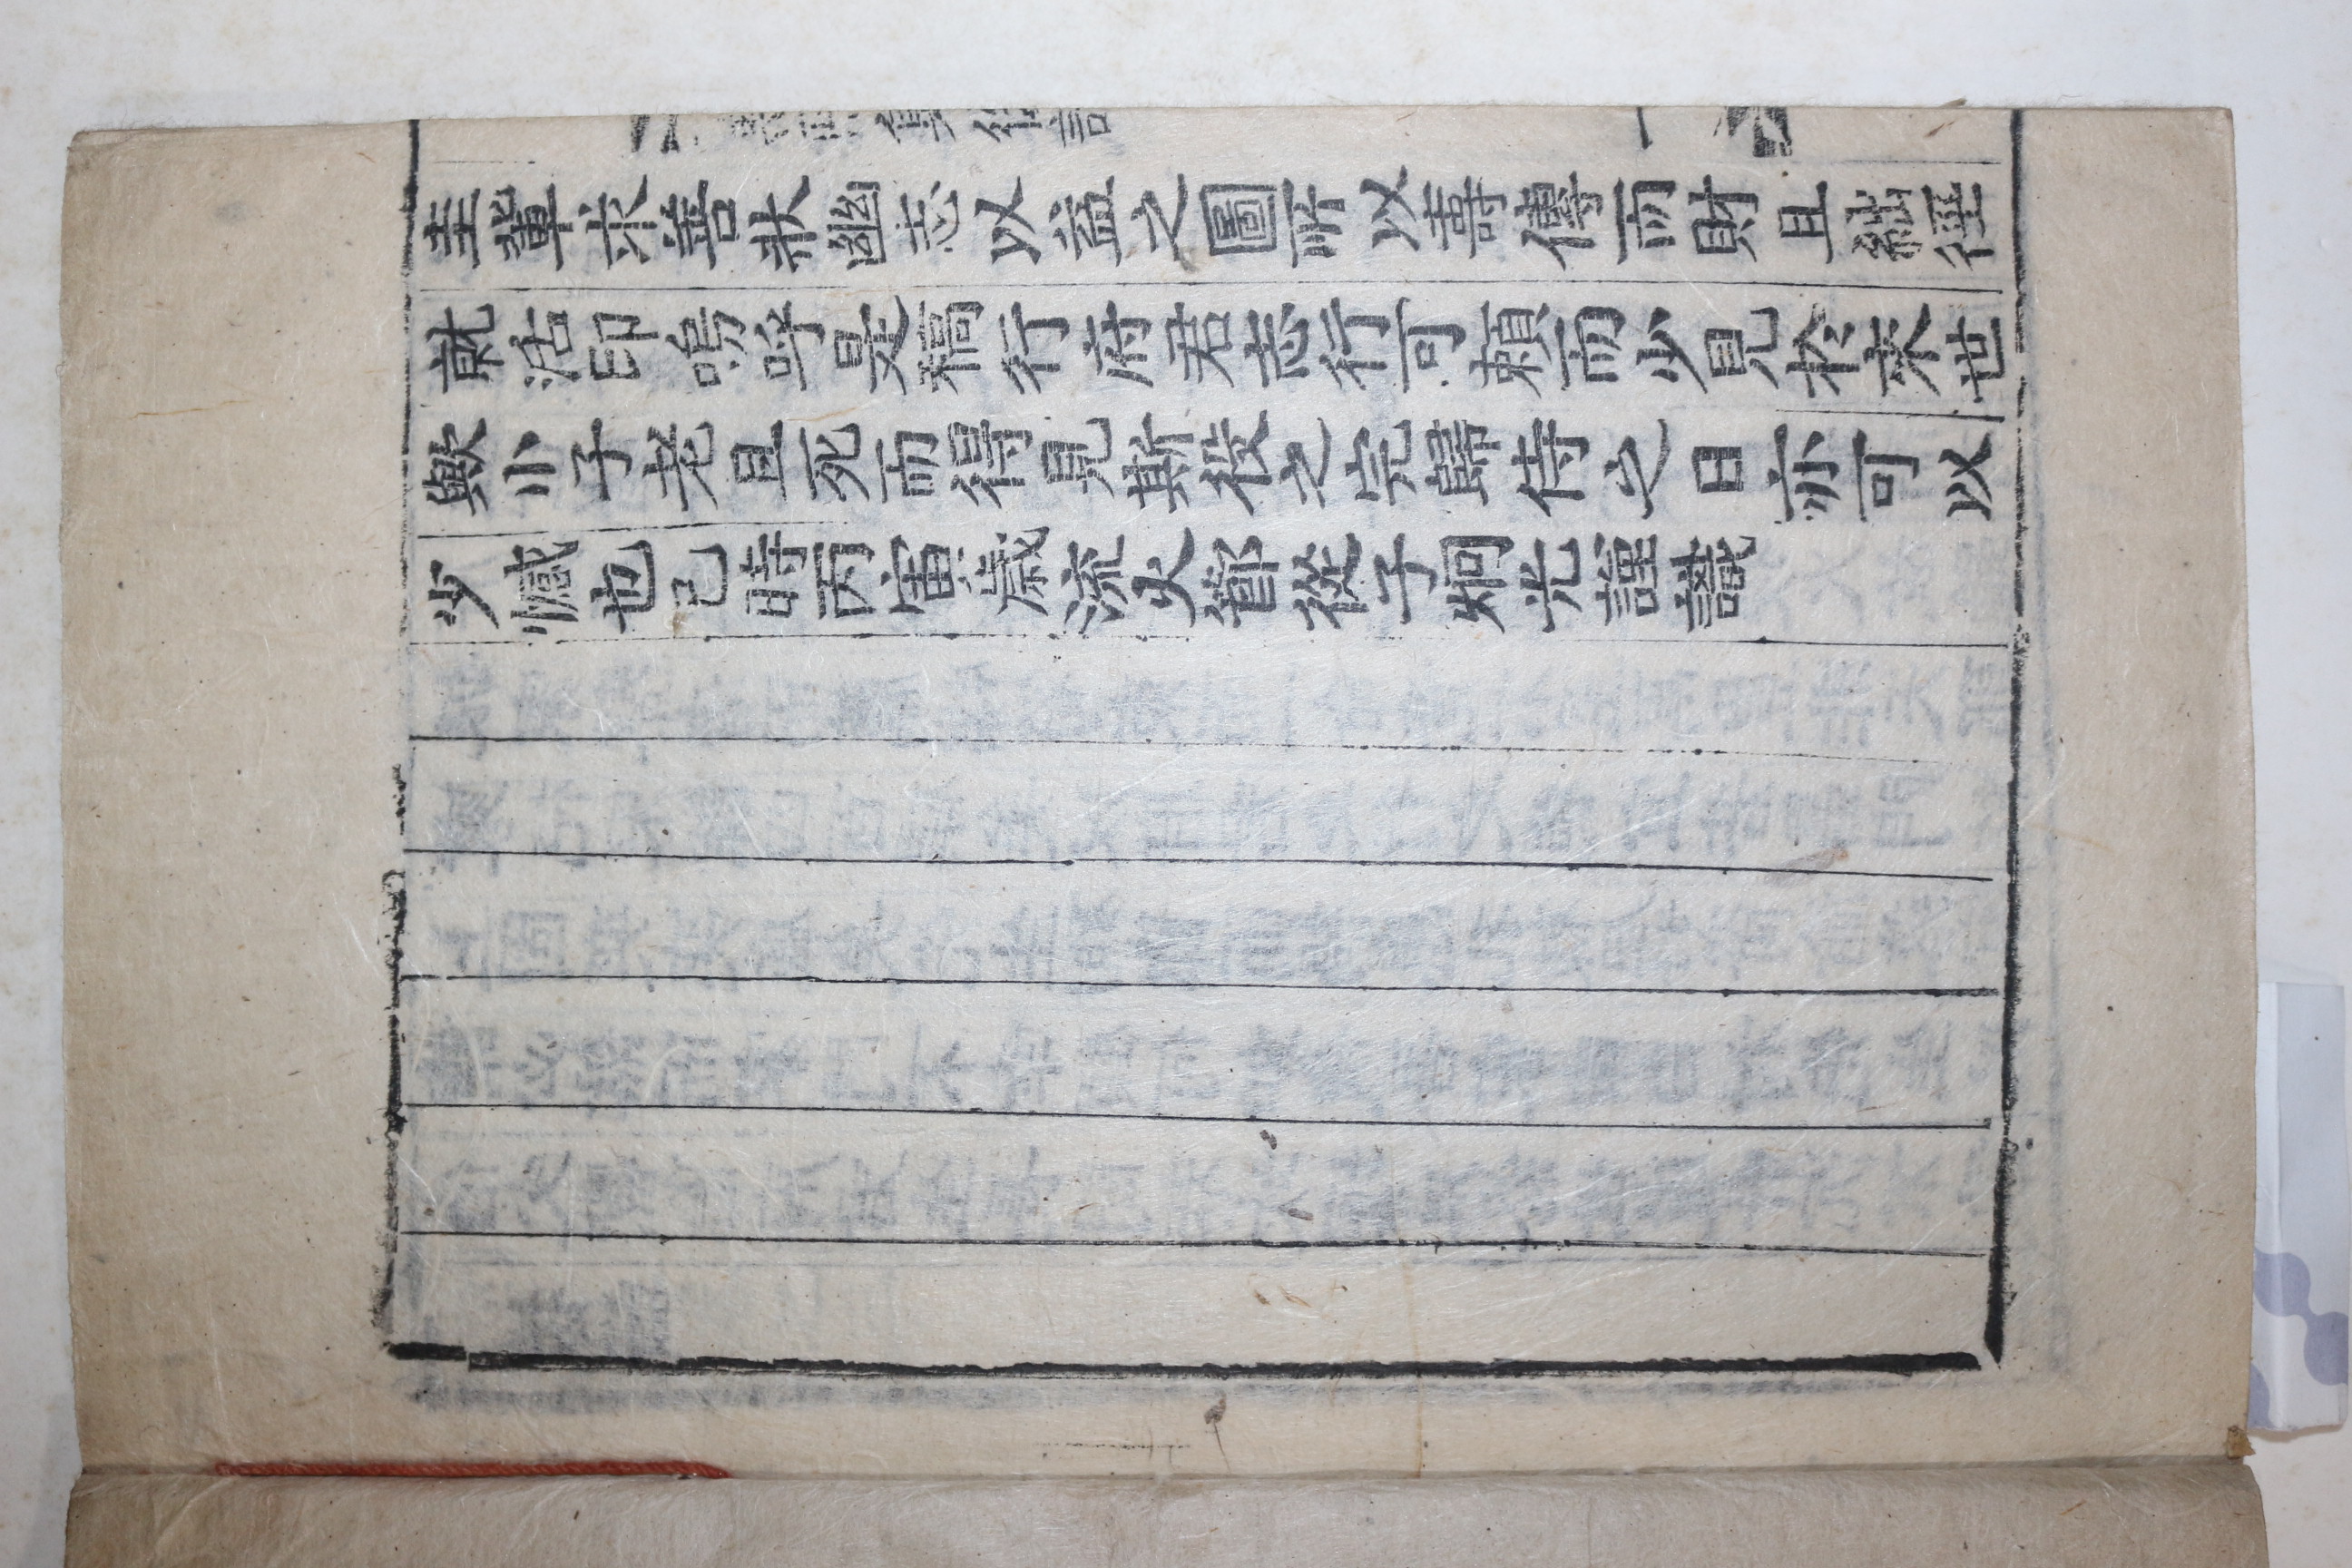 圭輩求善狀幽志以益之圖所以壽傳而財且絀徑
就活印嗚呼是稿行府君志行可賴而少見於來世
歟小子老且死而得見斯役之完歸侍之日亦可以
少憾也已時丙寅歲流火節從子炯光謹識
集後
一